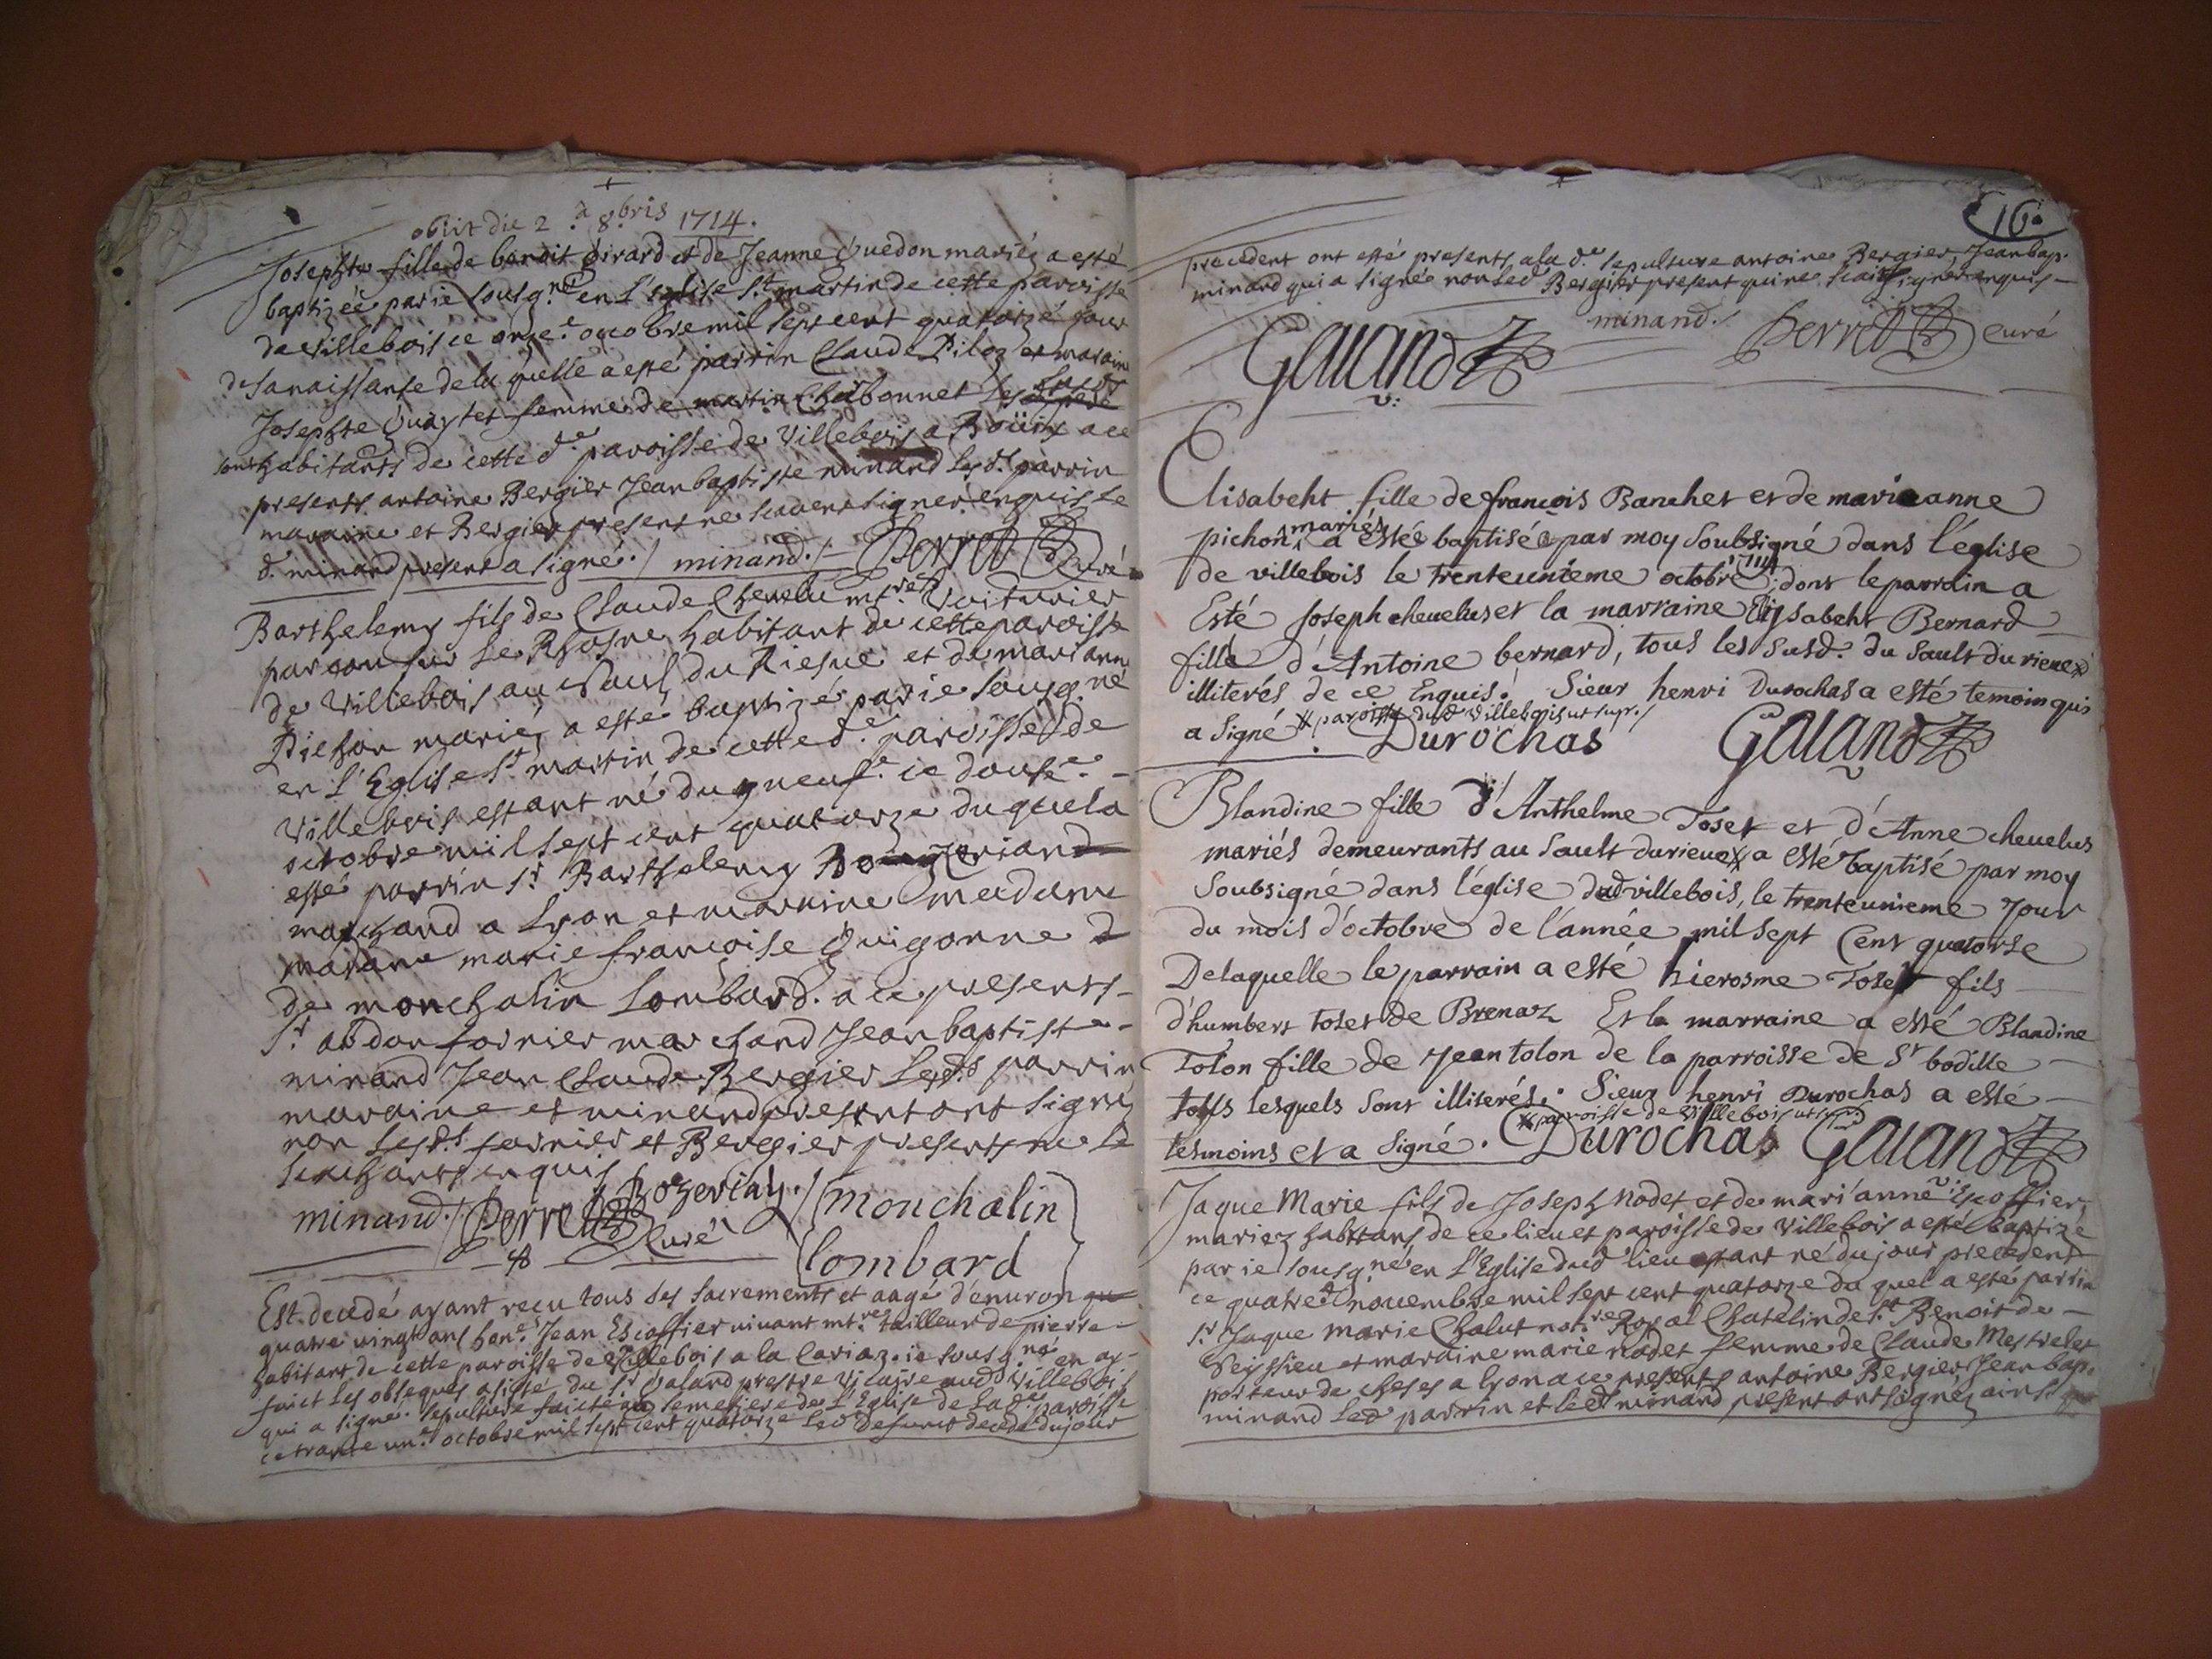 obiit die 2.a 8.bris 1714.
Josephte fille de benoit Girard et de Jeanne Guedon mariez a esté
baptizéé par ie sousg.né en L'Eglise St martin de cette paroisse
de villebois ce onze.e octobre mil sept cent quatorze jour
de sa naissanse de la quelle a esté parrin Claude Piloz et maraine
Josephte Quaytet femme de martin Charbonnet Les
sont habitants de cette d.e paroisse de Villebois a Boüis a ce
presents antoine Bergier Jean baptiste minand Les d.s parrin
maraine et Bergier present ne scavent signer enquis Le
d. minand present a signé ./ minand ./ Perret Curé
Barthelemy fils de Claude Chevelu mtre Voiturier
par eau sur Le Rhosne habitant de cette paroisse
de Villebois au Saulz du Riesue et de mariane
Pichon mariez a esté baptizé par ie sousg.né
en L'Eglise St martin de cette d.e paroisse de
Villebois estant né du neuf.e ce douse.e
octobre mil sept cent quatorze du quel a
esté parrin sr Barthelemy Bozeriand
marchand a Lyon et maraine madame
madame marie francoise Guigonne d
de monchalin Lombard. a ce presents
sr abdon fornier marchand Jean baptiste
minand Jean Claude Bergier Les d.s parrin
maraine et minand present ont signé
non Les d.s fornier et Beregier presents ne le
scachants enquis
minand ./ Perret Bozerian ./ monchalin
Curé lombard
Est decedé ayant recu tous les sacrements et aagé d'enuron
quatre uingt ans hon.e Jean Escoffier uiuant mtre tailleur de pierre
habitant de cette paroisse de Villebois a la Cariaz. ie sousg.né en ay
faict Les obseques asisté du sr Galand prestre Vicaire aud Villebois
qui a signé. sepulture faicte au semetiere de L'Eglise de La d.e paroisse
ce trante un.e octobre mil sept cent quatorze Led defunct decedé du jour
16
precedent ont esté presents a la d.e sepulture antoine Bergier, Jean bap.
minand qui a signé non led Bergier present qui ne scait signer enquis
minand ./ Perret curé
Galand
v:
Elisabeht fille de françois Banchet et de marieanne
pichon mariés a Estée baptisée par moy Soubsigné dans l'église
de villebois le trenteunieme octobre 1714 dont le parrain a
Esté Joseph chevelus et la marraine Elysabeht Bernard
fille d'Antoine bernard, tous les susd. du Sault du rieux
illiterés de ce Enquis. Sieur henri Durochas a esté temoin qui
a signé paroisse dud villebois ut supr./
Durochas Galand
Blandine fille d'Anthelme Toset et d'Anne chevelus
mariés demeurants au Sault du rieux a Esté baptisé par moy
Soubsigné dans l'église dud villebois, le trenteunieme Jour
du mois d'octobre de l'année mil sept Cent quatorse
De laquelle le parrain a esté hierosme Toset fils
d'humbert toset de Brenaz Et la marraine a esté Blandine
Tolon fille de Jean tolon de la parroisse de St bodille
tous lesquels sont illiterés. Sieur henri Durochas a esté
tesmoins et a signé. paroisse de Villebois ut supr.
Durochas Galand
v:
Jaque Marie fils de Joseph Nodet et de mari'anne Escoffier,
mariez habitans de ce lieu et paroisse de Villebois a esté baptizé
par ie sousg.né en L'Eglise dud lieu estant né du jour precedent
ce quatre.e nouembre mil sept cent quatorze du quel a esté parrin
sr Jaque marie Chalut not.re Royal Chatelin de St Benoit de
Seissieu et maraine marie nodet femme de Claude Mestrelet
porteur de cheses a lyon a ce presents antoine Bergier Jean bap.
minand Led parrin et led minand present ont signéz ainsi que